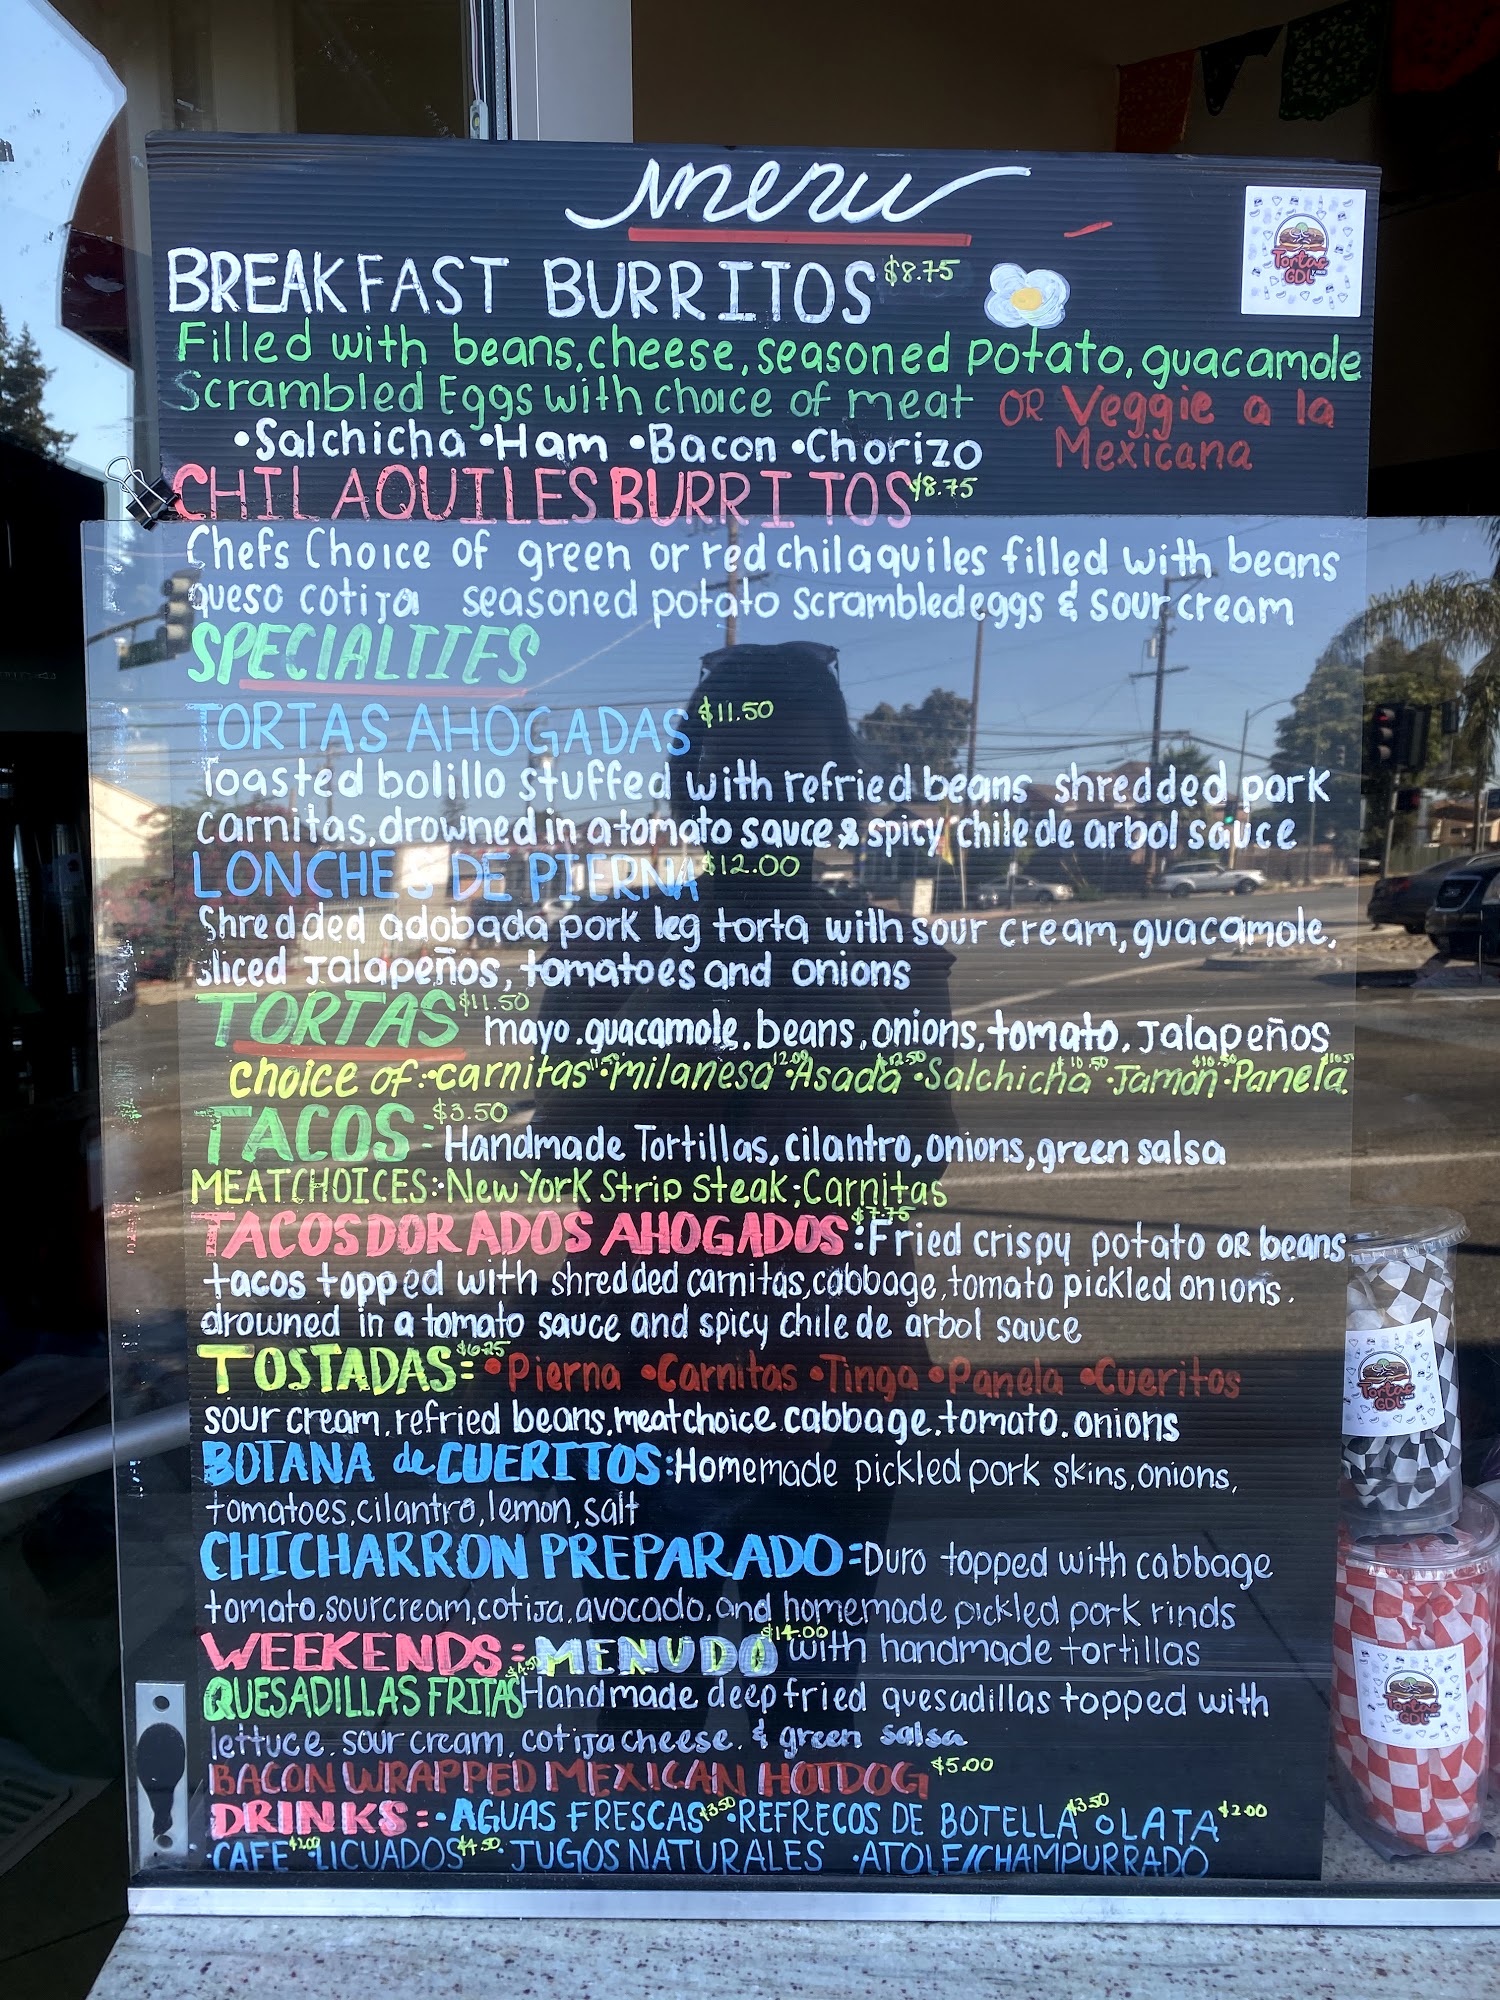 menu
BREAKFAST BURRITOS $8.75
Filled with beans, cheese, seasoned potato, guacamole
Scrambled Eggs with choice of meat OR Veggie a la
Mexicana
•Salchicha •Ham •Bacon •Chorizo
CHILAQUILES BURRITOS $8.75
Chefs Choice of green or red chilaquiles filled with beans
queso cotija seasoned potato scrambled eggs & sour cream
SPECIALTIES
TORTAS AHOGADAS $11.50
Toasted bolillo stuffed with refried beans shredded pork
carnitas, drowned in a tomato sauce & spicy chile de arbol sauce
LONCHES DE PIERNA $12.00
Shredded adobada pork leg torta with sour cream, guacamole,
sliced jalapeños, tomatoes and onions
TORTAS $11.50 mayo, guacamole, beans, onions, tomato, jalapeños
choice of: •carnitas •milanesa 12.00 •Asada $12.50 •Salchicha $10.50 •Jamon $10.50 •Panela
TACOS $3.50 = Handmade Tortillas, cilantro, onions, green salsa
MEAT CHOICES: •New York Strip Steak ; Carnitas
TACOS DORADOS AHOGADOS $7.75 : Fried crispy potato OR beans
tacos topped with shredded carnitas, cabbage, tomato pickled onions.
drowned in a tomato sauce and spicy chile de arbol sauce
TOSTADAS $6.25 = •Pierna •Carnitas •Tinga •Panela •Cueritos
sour cream, refried beans, meat choice, cabbage, tomato, onions
BOTANA de CUERITOS: Homemade pickled pork skins, onions,
tomatoes, cilantro, lemon, salt
CHICHARRON PREPARADO = Duro topped with cabbage
tomato, sour cream, cotija, avocado, and homemade pickled pork rinds
WEEKENDS = MENUDO $14.00 with handmade tortillas
QUESADILLAS FRITAS Handmade deep fried quesadillas topped with
lettuce, sour cream, cotija cheese, & green salsa
BACON WRAPPED MEXICAN HOTDOG $5.00
DRINKS = •AGUAS FRESCAS $3.50 •REFRECOS DE BOTELLA $3.50 O LATA $2.00
•CAFE $2.00 •LICUADOS $4.50 •JUGOS NATURALES •ATOLE/CHAMPURRADO
Tortas
GDL
Tortas
GDL
Tortas
GDL